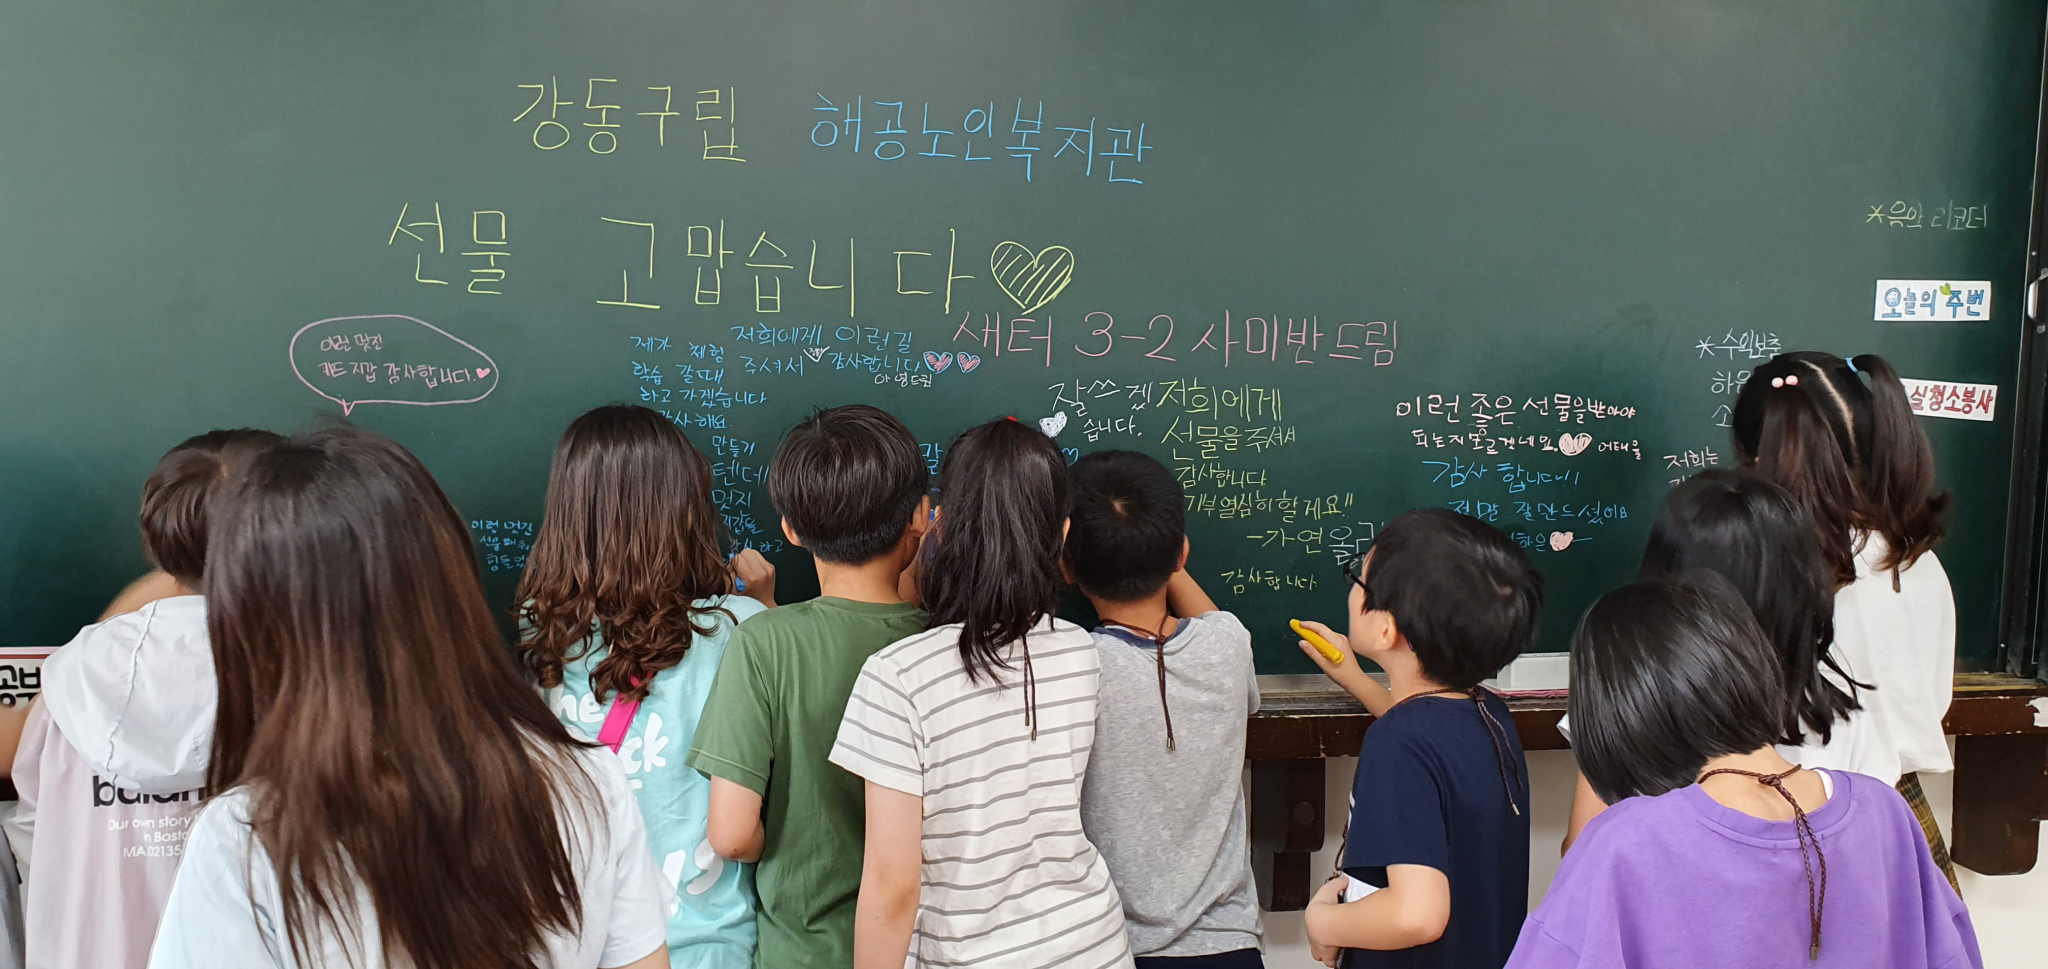 강동구립 해공노인복지관
선물 고맙습니다
새터 3-2 사미반 드림
이런 멋진
카드지갑 감사합니다.
제가 체험
학습 갈때
하고 가겠습니다
감사해요.
만들기
텐데
멋지
지갑을
감사하고
저희에게 이런걸
주셔서 감사합니다
아영드림
이런 멋진
잘쓰겠
습니다.
저희에게
선물을 주셔서
감사합니다
기부열심히할게요!!
-가연
감사합니다
이런 좋은 선물을받아야
되는지모르겠네요.
감사 합니다!!
정말 잘만드셨어요
저희는
*음악 리코더
오늘의 주번
*수익보충
실청소봉사
공부
Our own story
in Bosto
MA.02135